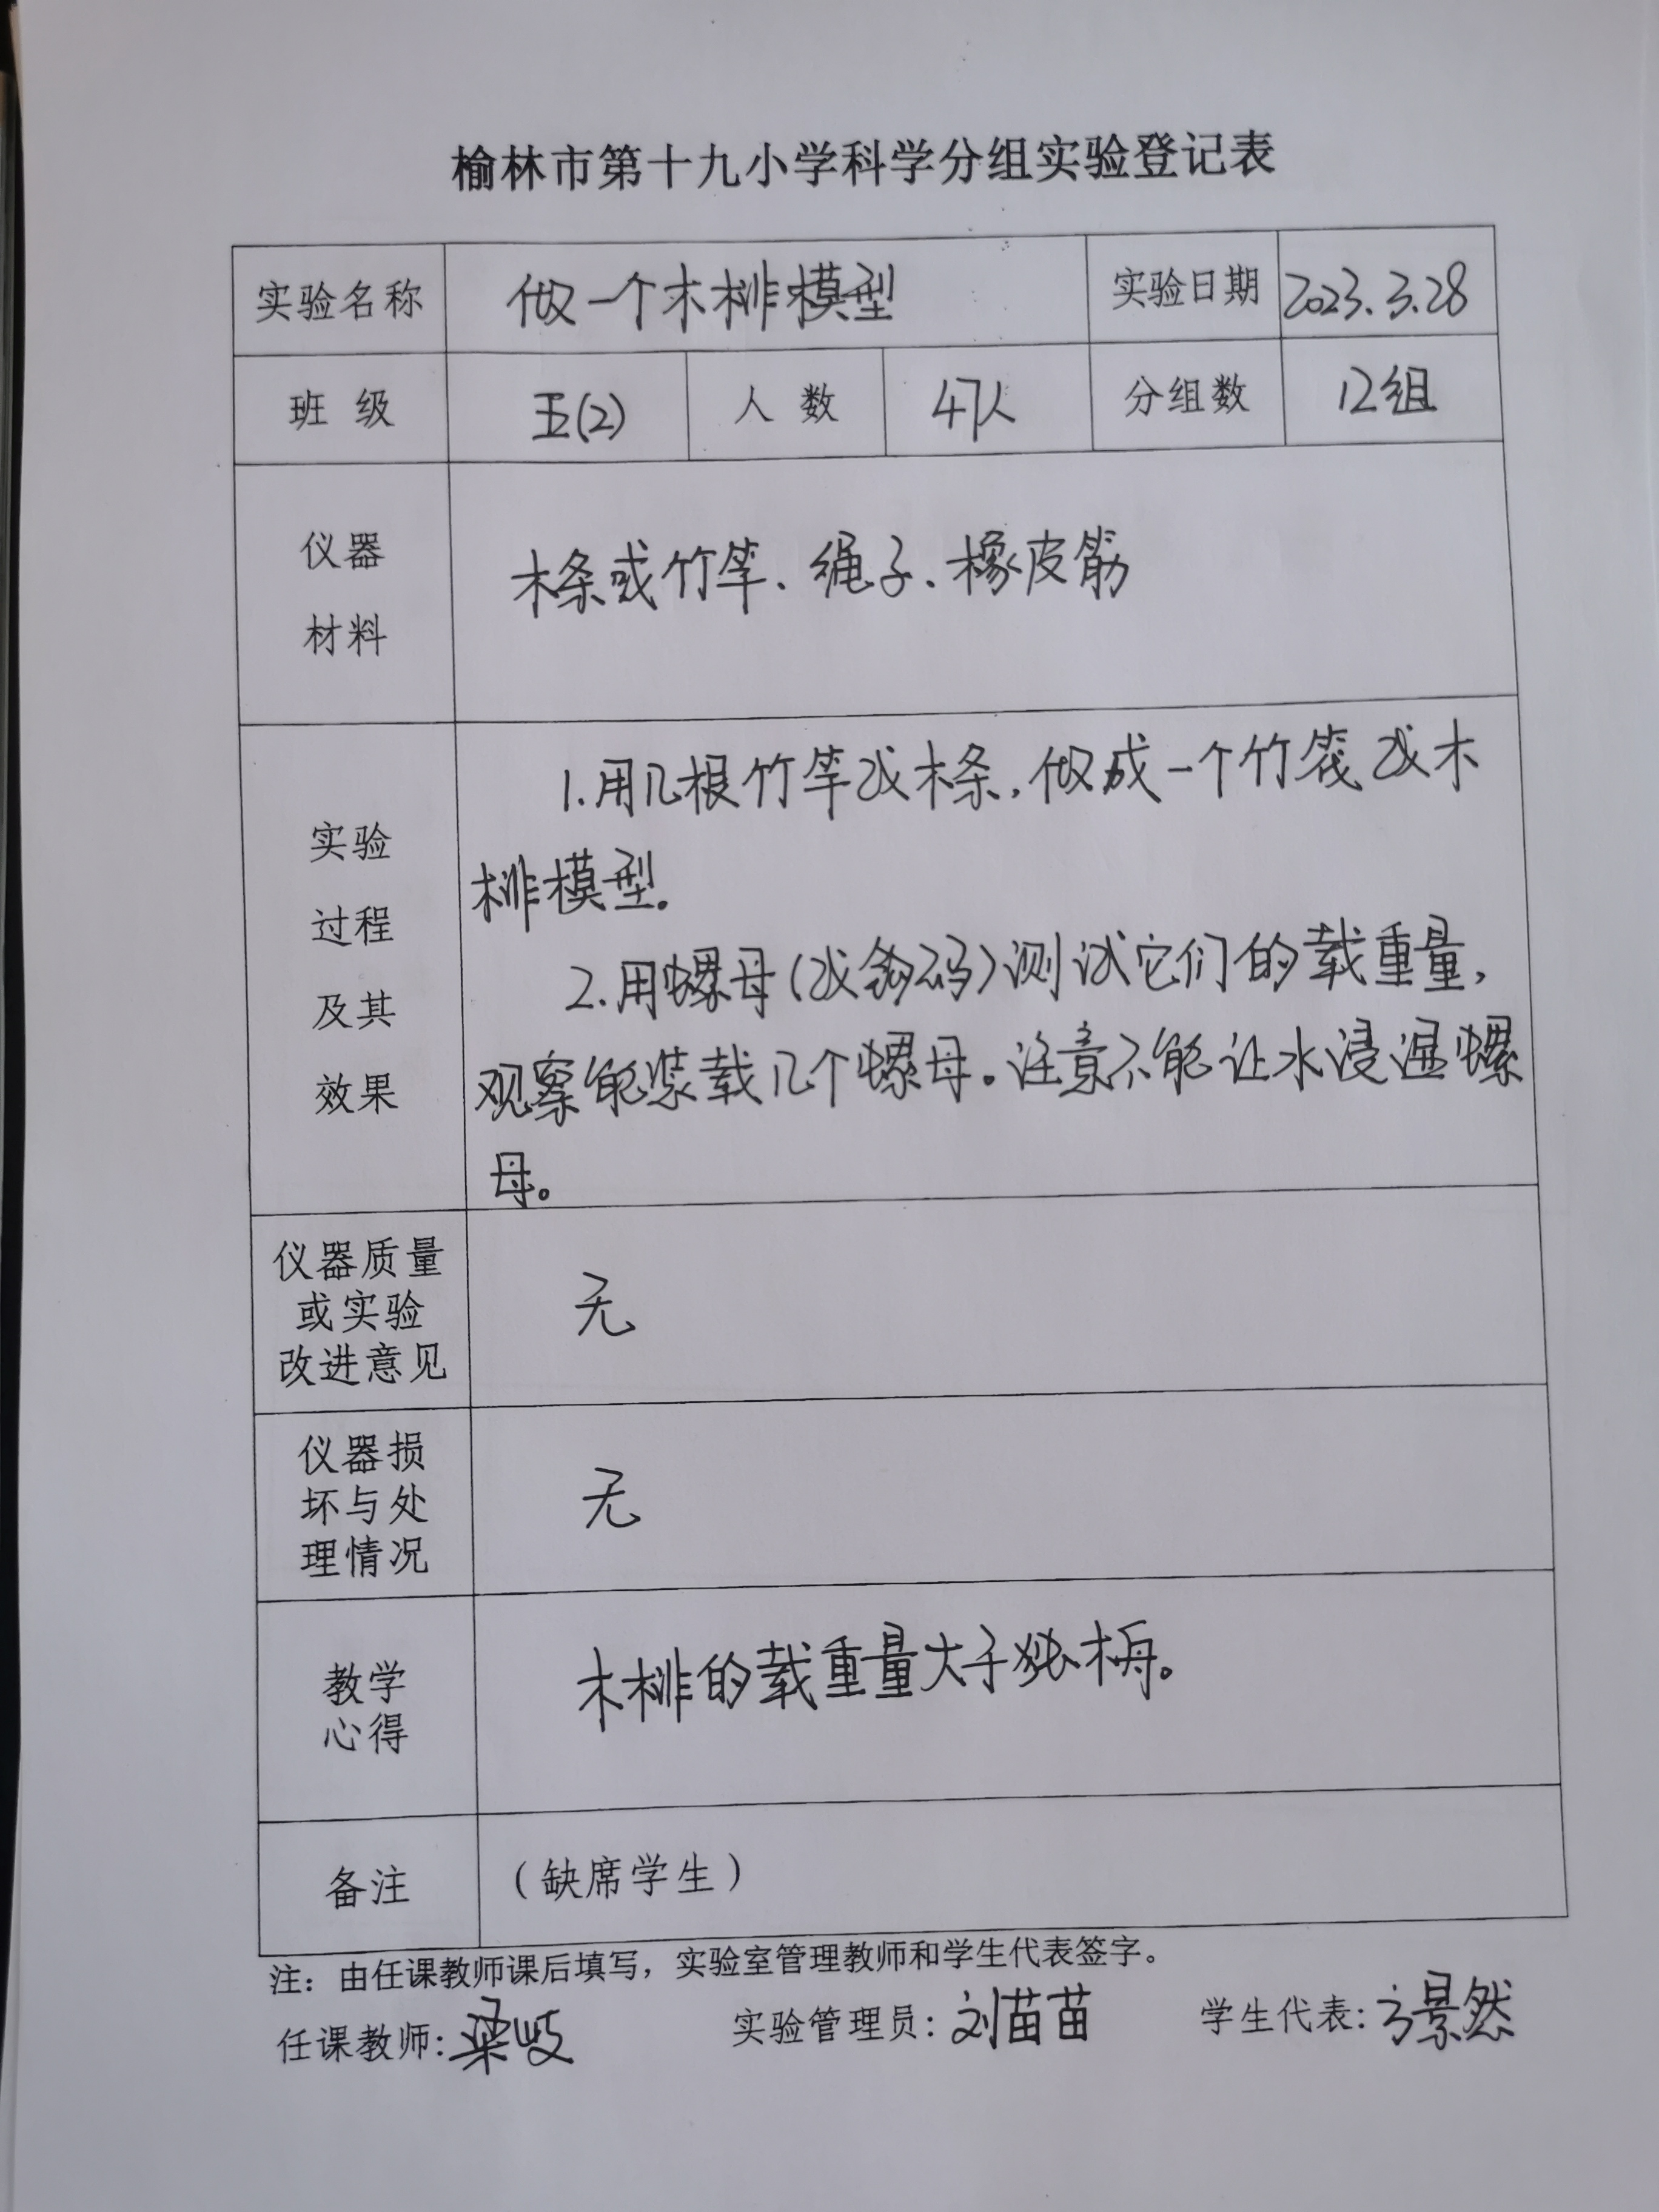 榆林市第十九小学科学分组实验登记表
实验名称 做一个木排模型 实验日期 2023.3.28
班 级 五(2) 人 数 47人 分组数 12组
仪器
材料
木条或竹竿、绳子、橡皮筋
实验
过程
及其
效果
1.用几根竹竿或木条,做成一个竹筏或木
排模型.
2.用螺母(或钩码)测试它们的载重量,
观察能装载几个螺母。注意不能让水浸湿螺
母。
仪器质量
或实验
改进意见
无
仪器损
坏与处
理情况
无
教学
心得
木排的载重量大于独木舟。
备注 (缺席学生)
注:由任课教师课后填写,实验室管理教师和学生代表签字。
任课教师:梁岐 实验管理员:刘苗苗 学生代表:方景然